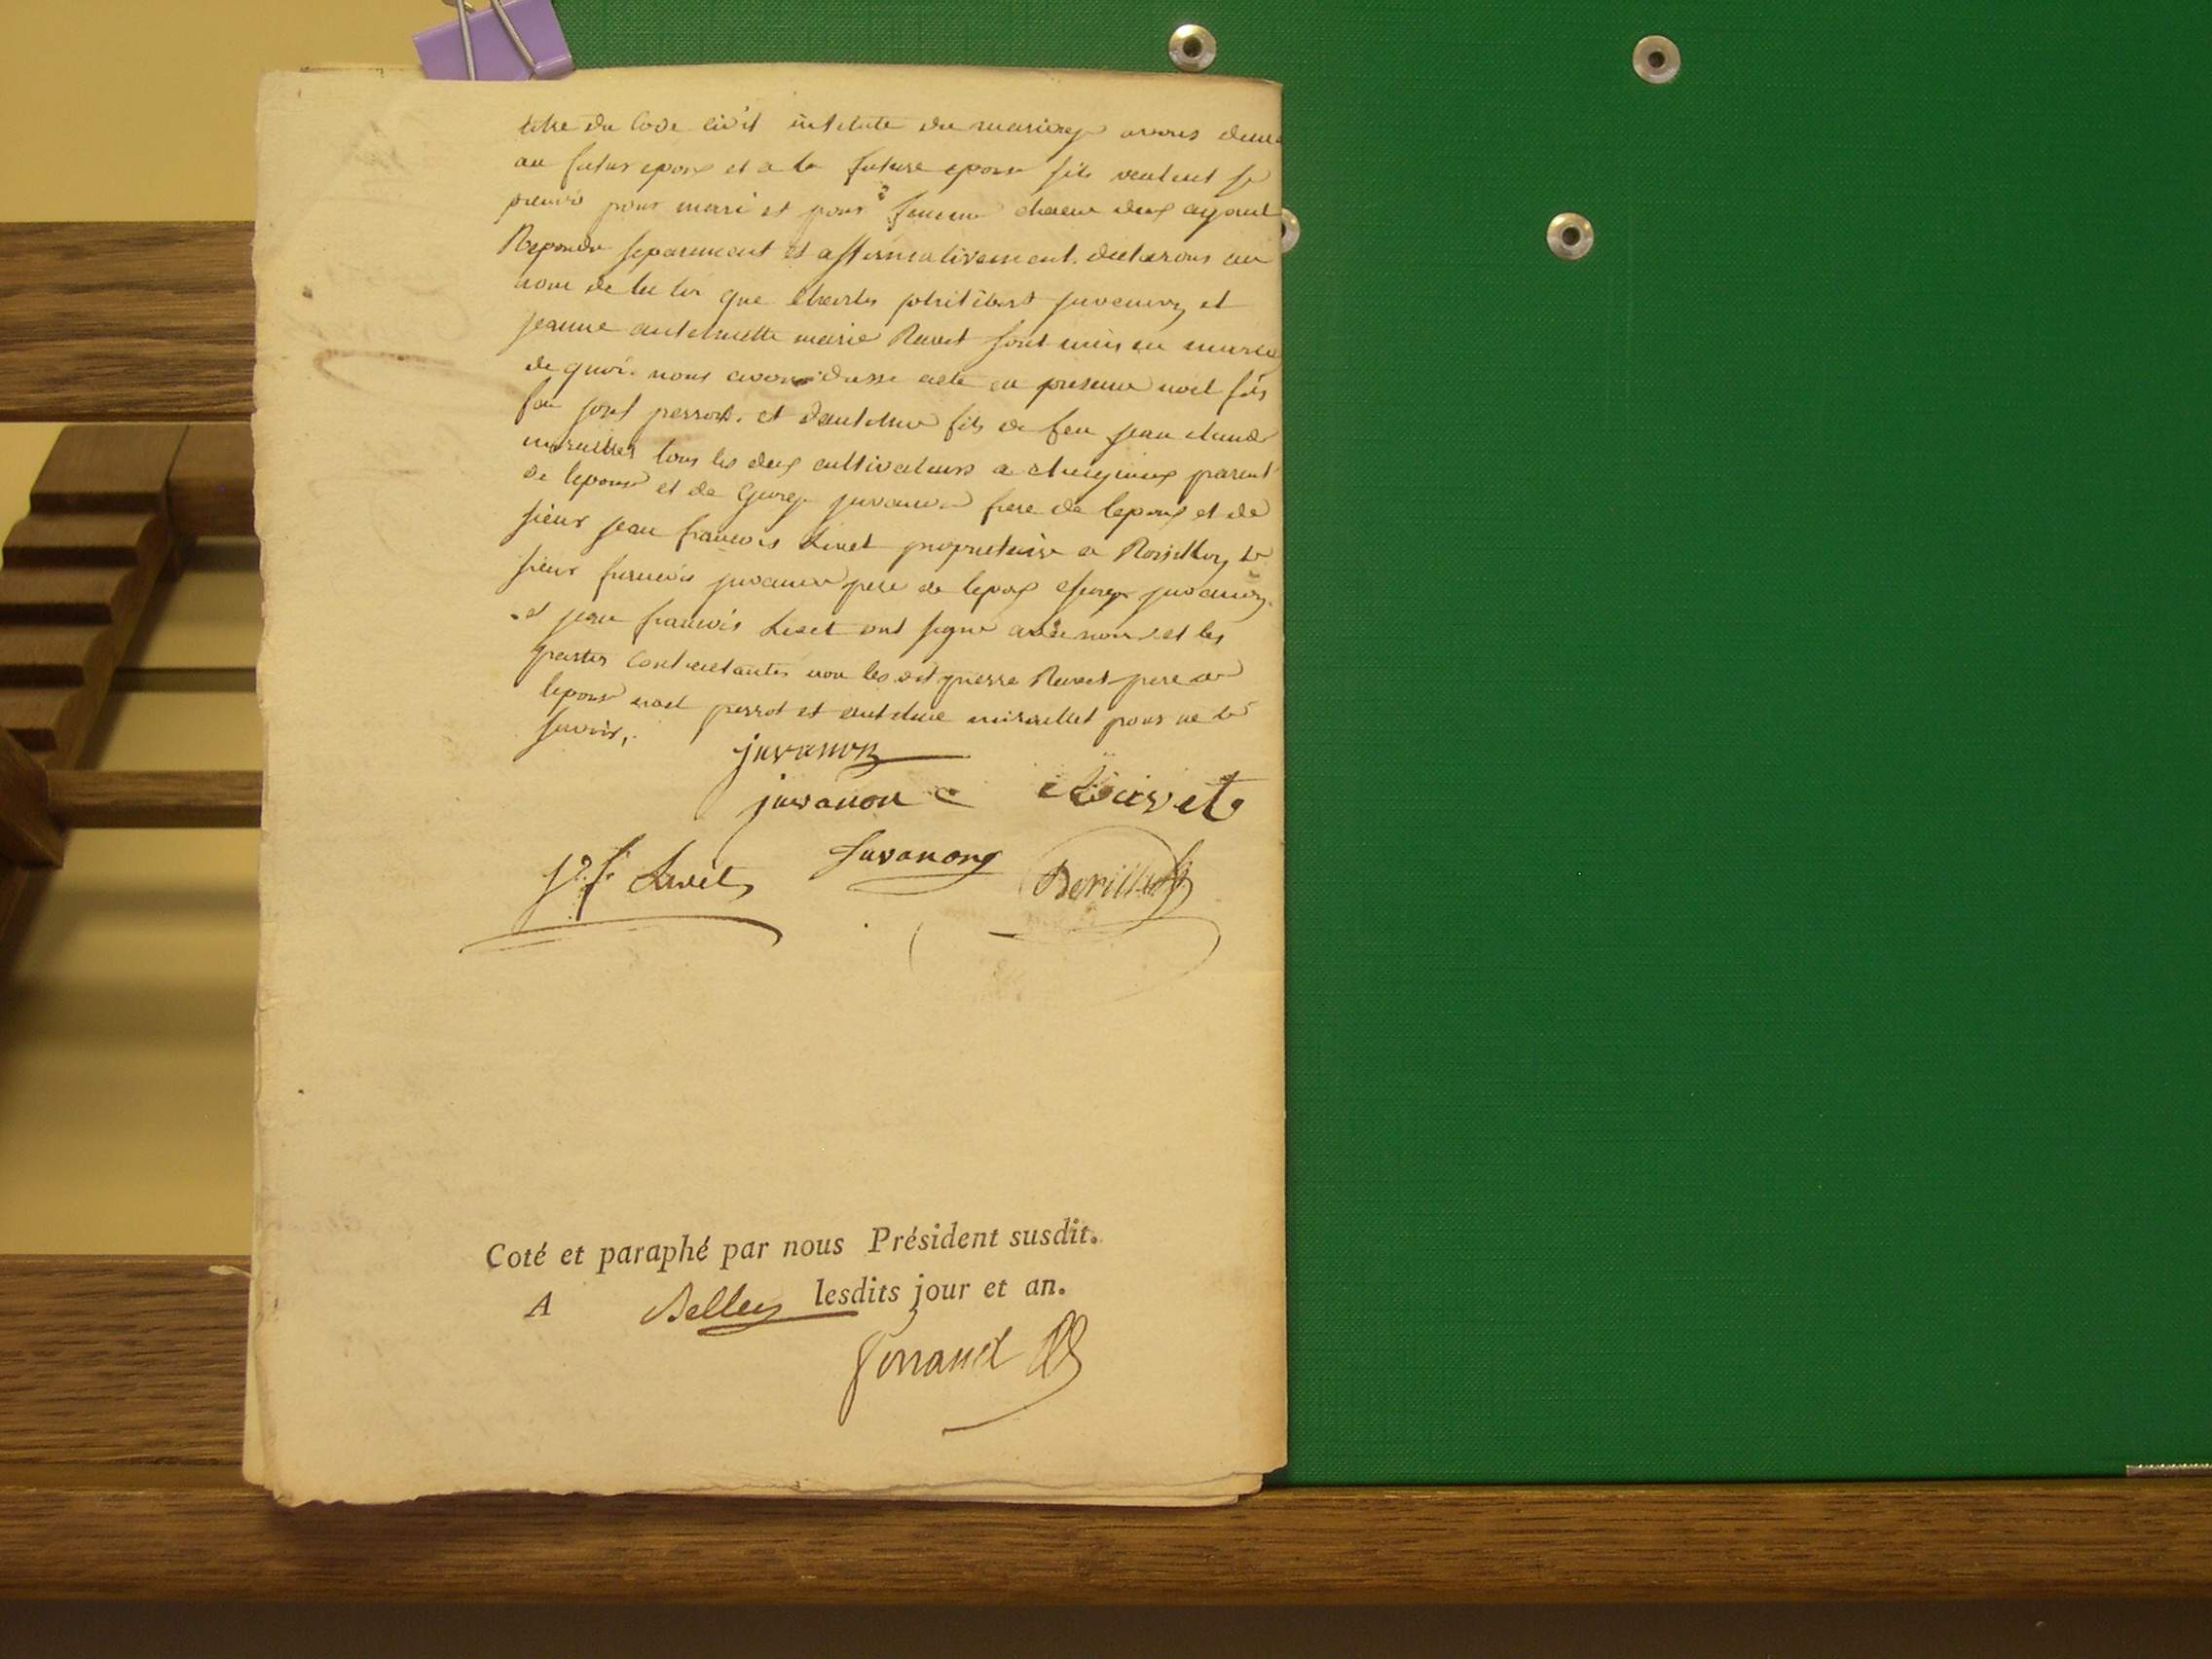 titre du Code civil intitulé du mariage avons dem
au futur epoux et a la future epouse sils veulent se
prendre pour mari et pour femme chacun deux ayant
Repondu separement et affirmativement. declarons au
nom de la loi que charles philibert juvanon et
jeanne anthelmette marie Ravet sont unis en mariage
de quoi. nous avons dressé acte en presence noel fils
feu josef perrot. et danthelme fils de feu jean claude
miraillet tous les deux cultivateurs a cheignieux parent
de lepouse et de George juvanon frere de lepoux et de
sieur jean francois Livet proprietaire a Rossillon, le
sieur francois juvanon pere de lepoux George juvanon
et jean francois Livet ont signé avec nous et les
parties Contractantes non les dit pierre Ravet pere de
lepouse noel perrot et anthelme miraillet pour ne le
savoir,.
juvanon
juvanon c
Ravet
jn. fs. Livet
Juvanon
Berillet
Coté et paraphé par nous Président susdit.
A Belley lesdits jour et an.